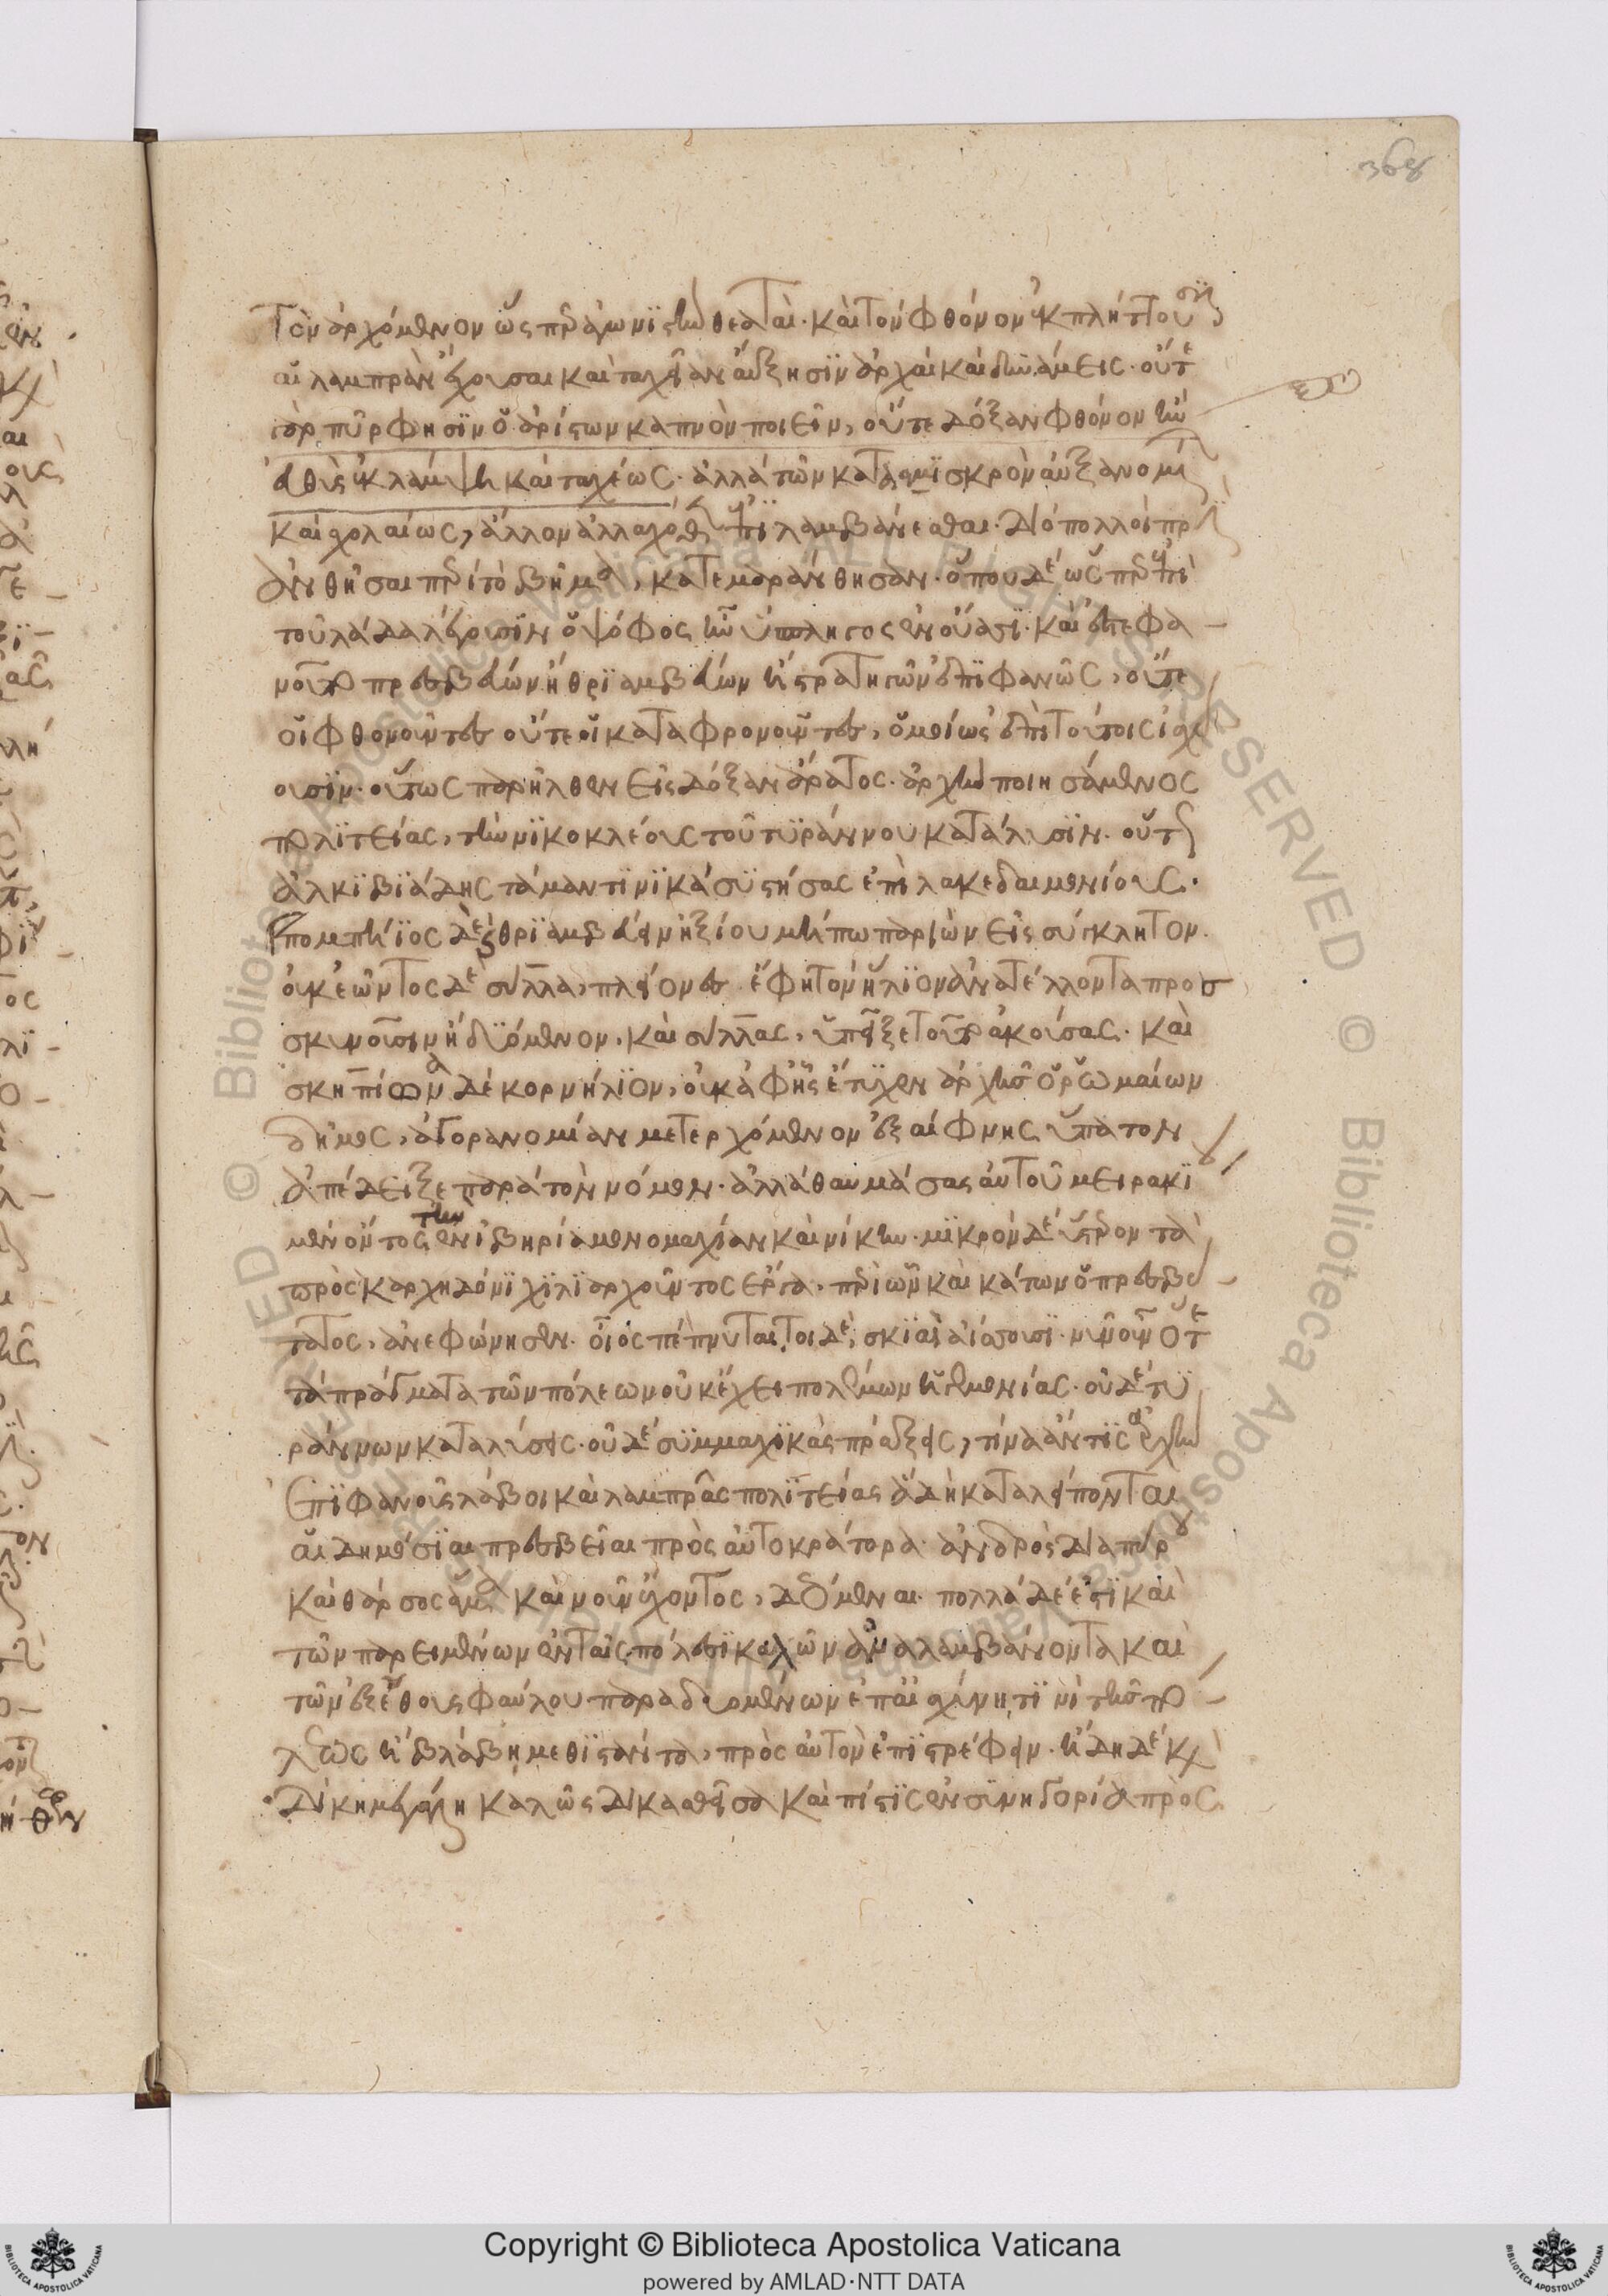 368
τὸν ἀρχόμενον ὥσπερ ἀγωνιστὴν θεαταί· καὶ τὸν φθόνον ἐκπλήττουσιν
αἱ λαμπρὰν ἔχουσαι καὶ ταχεῖαν αὔξησιν ἀρχαὶ καὶ δυνάμεις· οὔτε
γὰρ πῦρ φησὶν ὁ ἀρίστων καπνὸν ποιεῖν, οὔτε δόξαν φθόνον ἢν
εὐθὺς ἐκλάμψη καὶ ταχέως· ἀλλὰ τῶν κατὰ μισκρὸν αὐξανομένων
καὶ σχολαίως, ἄλλον ἀλλαχόθεν ἐπιλαμβάνεσθαι· διὸ πολλοὶ πρὶν
ἀνθῆσαι περὶ τὸ βῆμα, κατεμαράνθησαν· ὅπου δὲ ὥσπερ ἐπὶ
τοῦ λάδα λέγουσιν ὁ ψόφος ἦν ὕσπληγος ἐν οὔασι· καὶ ἐστεφα
νοῦτο πρεσβεύων ἢ θριαμβεύων ἢ στρατηγῶν ἐπιφανῶς, οὔτε
οἱ φθονοῦντες οὔτε οἱ καταφρονοῦντες, ὁμοίως ἐπὶ τούτοις ἰσχύ
ουσιν· οὕτως παρῆλθεν εἰς δόξαν ἄρατος· ἀρχὴν ποιησάμενος
πολιτείας, τὴν νικοκλέους τοῦ τυράννου κατάλυσιν· οὕτως
ἀλκιβιάδης τὰ μαντινικὰ συστήσας ἐπὶ λακεδαιμονίους·
πομπήϊος δὲ θριαμβεύειν ἠξίου μήπω παριὼν εἰς σύγκλητον·
οὐκ ἐῶντος δὲ σύλλα, πλείονες ἔφη τὸν ἥλιον ἀνατέλλοντα προσ
σκυνοῦσιν ἢ δυόμενον, καὶ σύλλας, ὑπεῖξε τοῦτο ἀκούσας· καὶ
σκηπίωνα δὲ κορνήλιον, οὐκ ἀφ' ἧς ἔτυχεν ἀρχῆς ὁ ῥωμαίων
δῆμος, ἀγορανομίαν μετερχόμενον ἐξαίφνης ὕπατον
ἀπέδειξε παρὰ τὸν νόμον· ἀλλὰ θαυμάσας αὐτοῦ μειρακι
μὲν ὄντος τὴν ἐν ἰβηρία μονομαχίαν καὶ νίκην· μικρὸν δὲ ὕστερον τὰ
πρὸς καρχηδόνι χιλιαρχοῦντος ἔργα, περὶ ὧν καὶ κάτων ὁ πρεσβύ
τατος, ἀνεφώνησεν· οἷος πέπνυται, τοὶ δὲ, σκιαὶ ἀΐσσουσι· νῦν οὖν ὅτε
τὰ πράγματα τῶν πόλεων οὐκ ἔχει πολέμων ἡγεμονίας· οὐδὲ τυ
ράννων καταλύσεις· οὐδὲ συμμαχικὰς πράξεις, τίνα ἄν τις ἀρχὴν
ἐπιφανοῦς λάβοι καὶ λαμπρᾶς πολιτείας ἃ δὴ καταλείπονται
αἱ δημόσιαι πρεσβεῖαι πρὸς αὐτοκράτορα ἀνδρὸς διαπύρου
καὶ θάρσος ἅμα καὶ νοῦν ἔχοντος, δεόμεναι· πολλὰ δὲ ἔστι καὶ
τῶν παρειμένων ἐν ταῖς πόλεσι καλῶν ἀναλαμβάνοντα καὶ
τῶν ἐξ ἔθους φαύλου παραδυομένων ἐπ' αἰσχύνη τινὶ τῆς πό
λεως ἢ βλάβη, μεθιστάντα, πρὸς αὑτὸν ἐπιστρέφειν· ἤδη δὲ καὶ
δίκη μεγάλη καλῶς δικασθεῖσα καὶ πίστις ἐν συνηγορία πρὸς